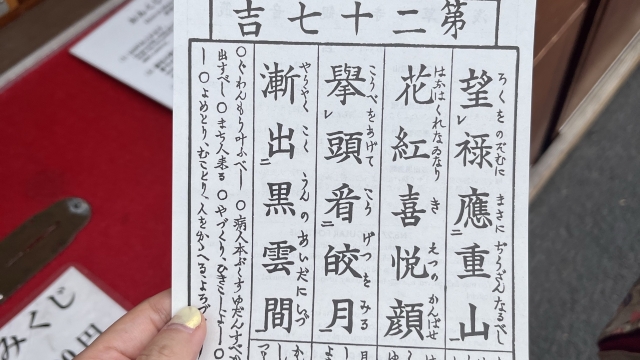 第二十七吉
望レ祿應二重山一
ろくをのぞむに まさに ぢうざんなるべし
花紅喜悦顔
はなはくれなゐなり き えつの かんばせ
擧レ頭看二皎月一
こうべをあげて こう げつを みる
漸出二黒雲間一
やうやく こく うんの あいだにいづ
○ぐわんもう叶ふべし ○病人本ぷくすゆだんすべか
出すべし ○まち人来る ○やづくり、ひきこしよ
○よめとり、むことり、人をかゝへるよろづ
みくじ
円